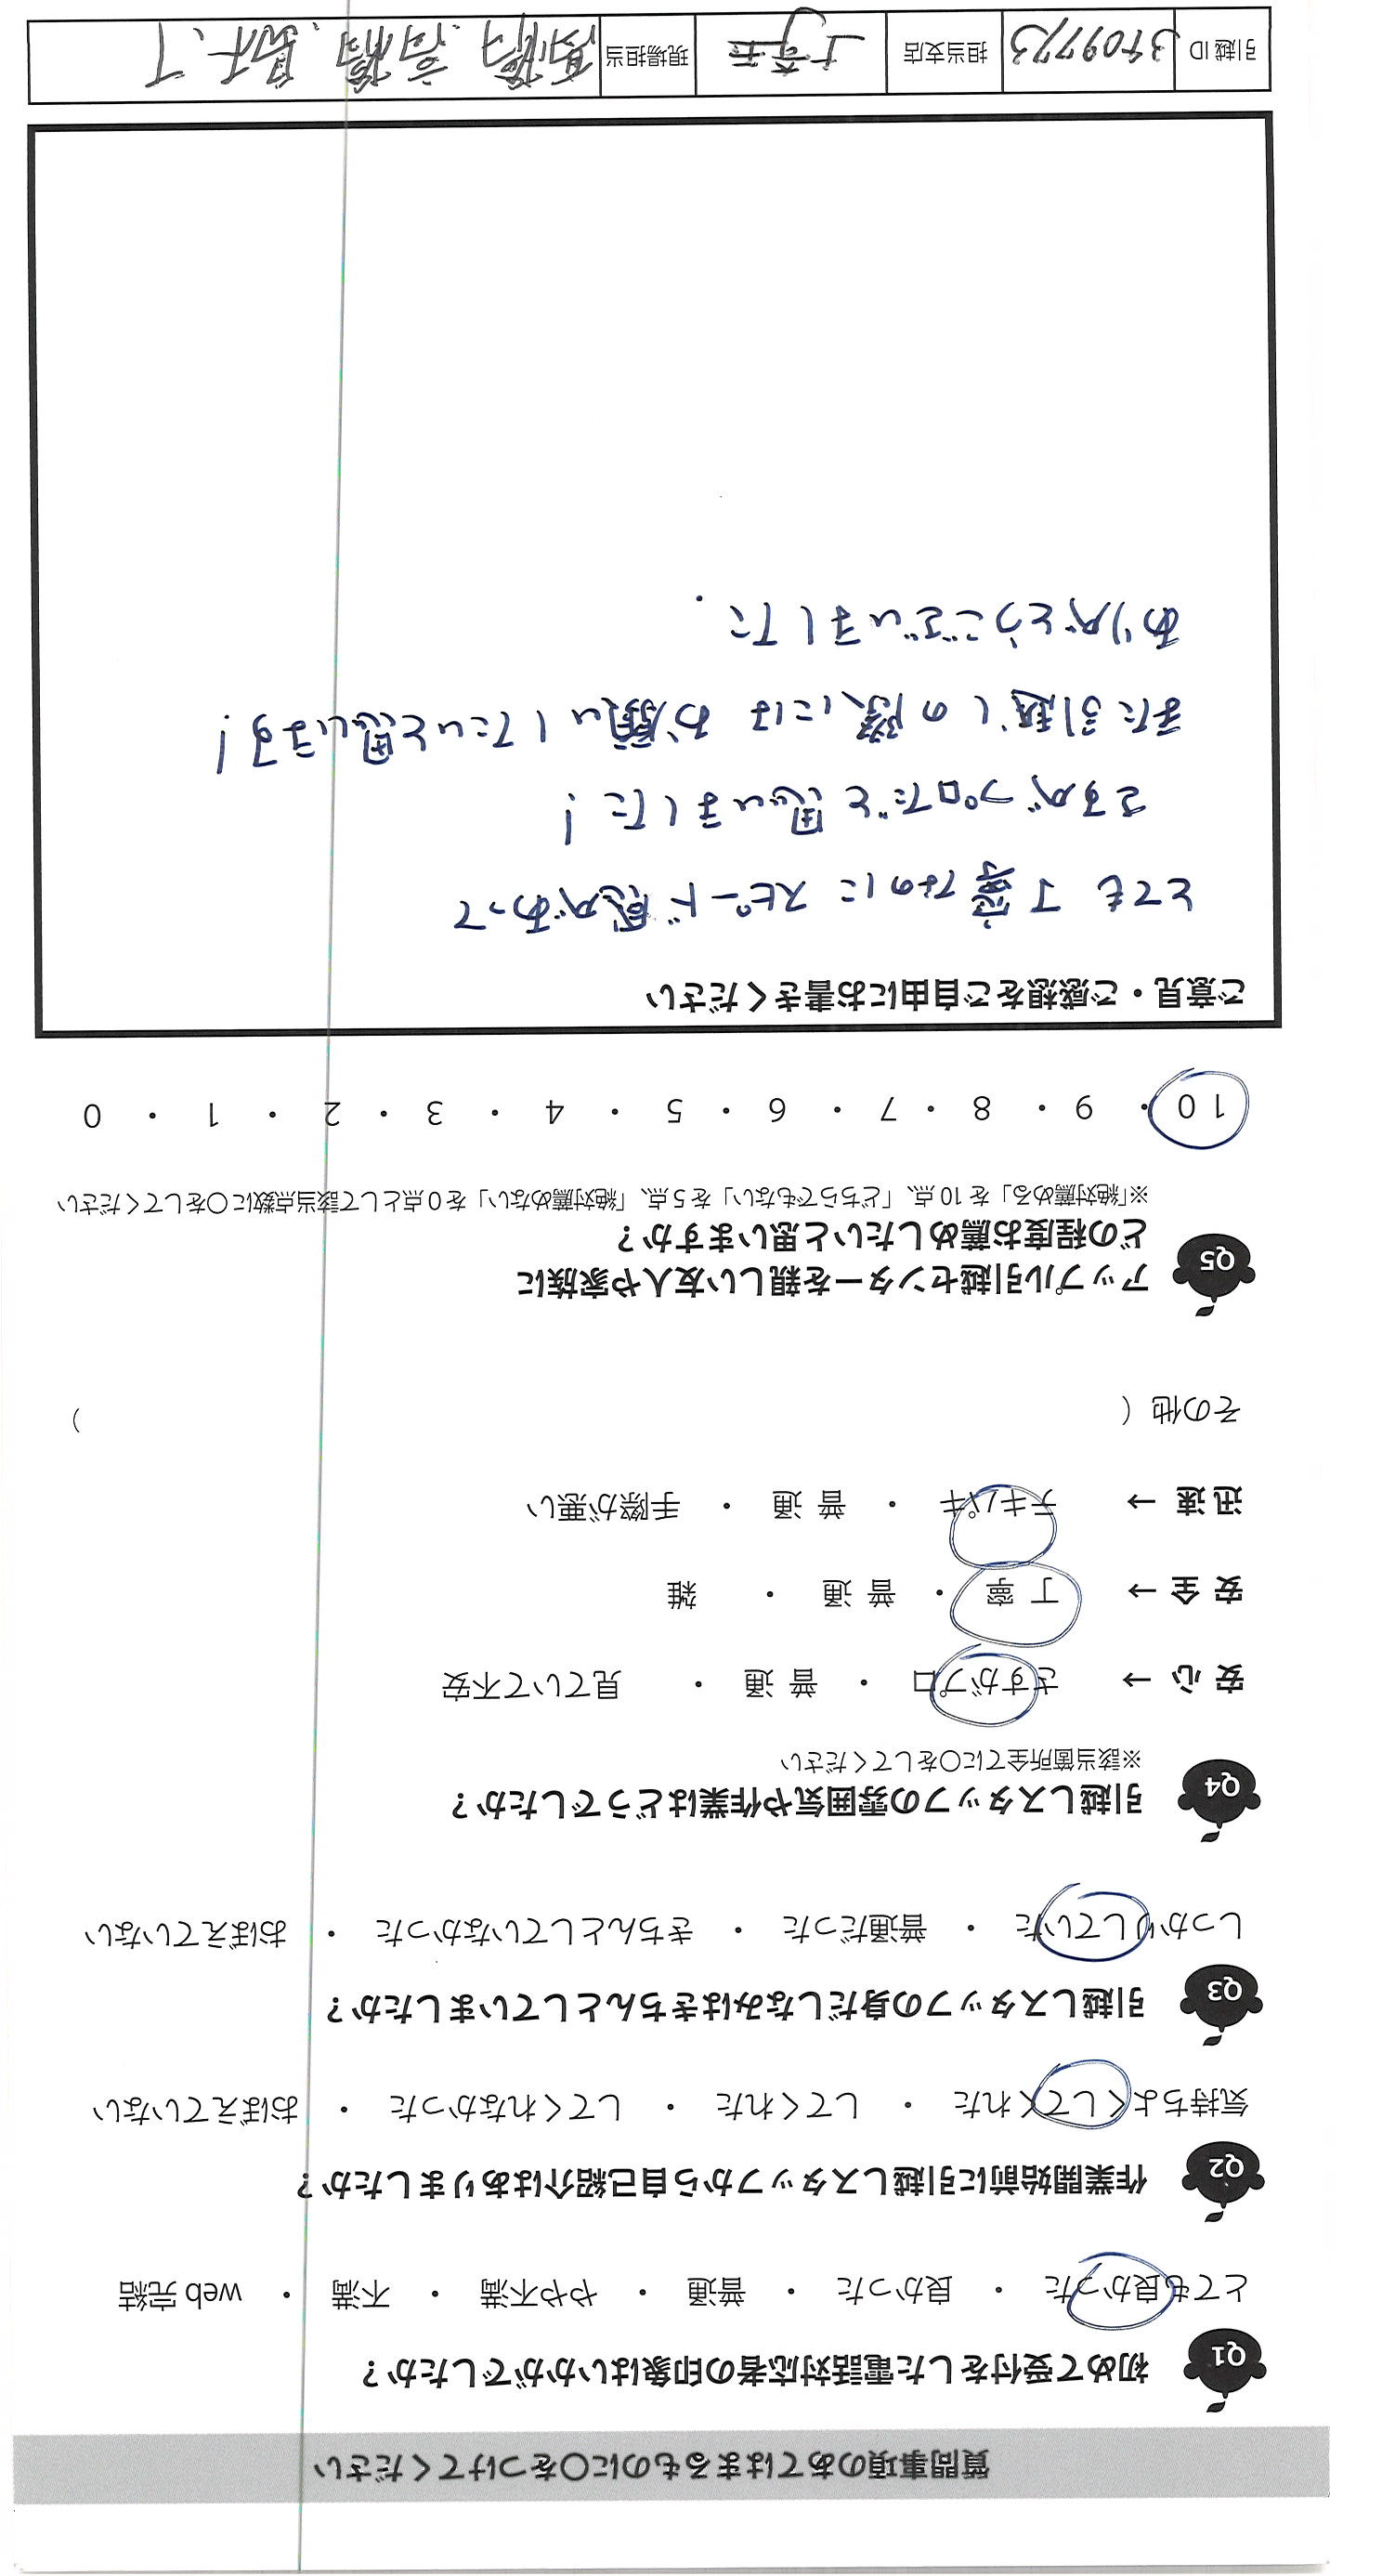 質問事項のあてはまるものに○をつけてください
Q1 初めて受付をした電話対応者の印象はいかがでしたか？
とても良かった ・ 良かった ・ 普通 ・ やや不満 ・ 不満 ・ web 完結
Q2 作業開始前に引越しスタッフから自己紹介はありましたか？
気持ちよくしてくれた ・ してくれた ・ してくれなかった ・ おぼえていない
Q3 引越しスタッフの身だしなみはきちんとしていましたか？
しっかりしていた ・ 普通だった ・ きちんとしていなかった ・ おぼえていない
Q4 引越しスタッフの雰囲気や作業はどうでしたか？
※該当箇所全てに○をしてください
安 心 → さすがプロ ・ 普 通 ・ 見ていて不安
安 全 → 丁 寧 ・ 普 通 ・ 雑
迅 速 → テキパキ ・ 普 通 ・ 手際が悪い
その他（ ）
Q5 アップル引越センターを親しい友人や家族に
どの程度お薦めしたいと思いますか？
※「絶対薦める」を 10 点、「どちらでもない」を 5 点、「絶対薦めない」を 0 点として該当点数に○をしてください
10 ・ 9 ・ 8 ・ 7 ・ 6 ・ 5 ・ 4 ・ 3 ・ 2 ・ 1 ・ 0
ご意見・ご感想をご自由にお書きください
とても 丁寧なのに スピード感があって
さすが プロだと 思いました！
また引越しの際には お願いしたいと思います！
ありがとうございました．
引越 ID 担当支店 現場担当 高橋